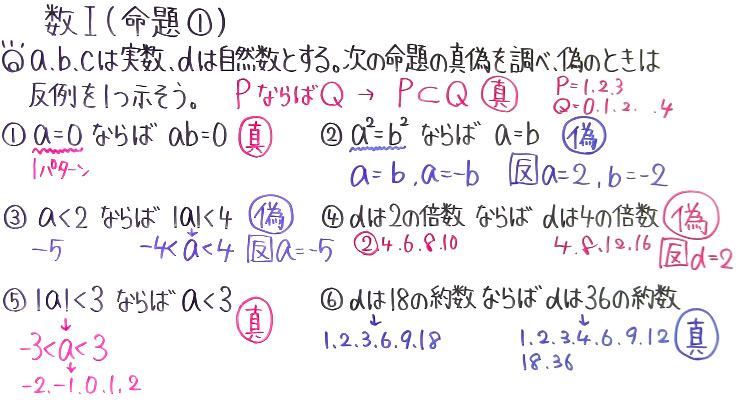 数I(命題①)
a.b.cは実数、dは自然数とする。次の命題の真偽を調べ、偽のときは
反例を1つ示そう。 PならばQ → P⊂Q 真
P=1.2.3
Q=0.1.2. .4
① a=0 ならば ab=0 真
1パターン
② a²=b² ならば a=b 偽
a=b.a=-b 反a=2.b=-2
③ a<2 ならば |a|<4 偽
-5 -4<a<4 反a=-5
④ dは2の倍数 ならば dは4の倍数 偽
②4.6.8.10 4.8.12.16 反d=2
⑤ |a|<3 ならば a<3 真
↓
-3<a<3
↓
-2.-1.0.1.2
⑥ dは18の約数 ならば dは36の約数
↓ ↓
1.2.3.6.9.18 1.2.3.4.6.9.12 真
18.36